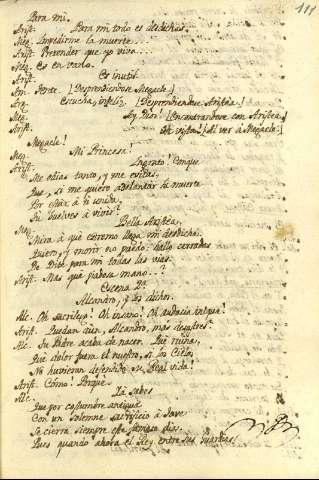 111
Para mi.
Arist. Para mi todo es desdichas.
Meg. Impedirme la muerte...
Arist. Pretender que yo viva...
Meg. Es en vano.
Arist. Es inutil.
Am. Tente. (Desprendiendose Megacle.)
Arg. Escucha, infeliz. (Desprendiendose Aristea.)
Meg. Ay Dios! (Encontrandose con Aristea.)
Arist. (Al ver á Megacle.)
Megacle!
Meg. Mi Princesa!
Arist. Ingrato! Conque
Me odias tanto, y me evitas,
Que, si me quiero adelantar la muerte
Por à ti unida,
Tu buelves á vivir?
Meg. Bella Aristea,
Mira à qué extremo llega mi desdicha.
Quiero, y morir no puedo: hallo cerradas
De para mi todas las vias.
Arist. Mas qué piadosa mano..?
Escena 2ª
Alcandro, y los dichos.
Alc. Oh sacrilego! Oh insano! Oh audacia iniqua!
Arist. Quedan aun, Alcandro, mas desastres?
Alc. Tu Padre acaba de nacer. Qué ruina,
Qué dolor fuera el nuestro, si los Cielos
No hubieran defendido su Real vida!
Arist. Cómo! Porque
Alc. Ya sabes
Que por costumbre antigua
Con un solemne sacrificio à Jove
Se cierra siempre este famoso dia.
Pues quando ahora el Rey entre sus Guardias